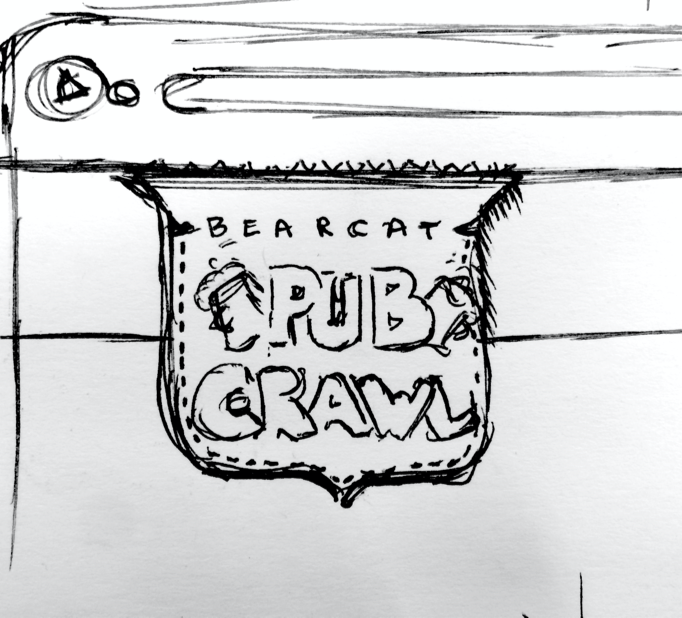 BEARCAT
PUB
CRAWL